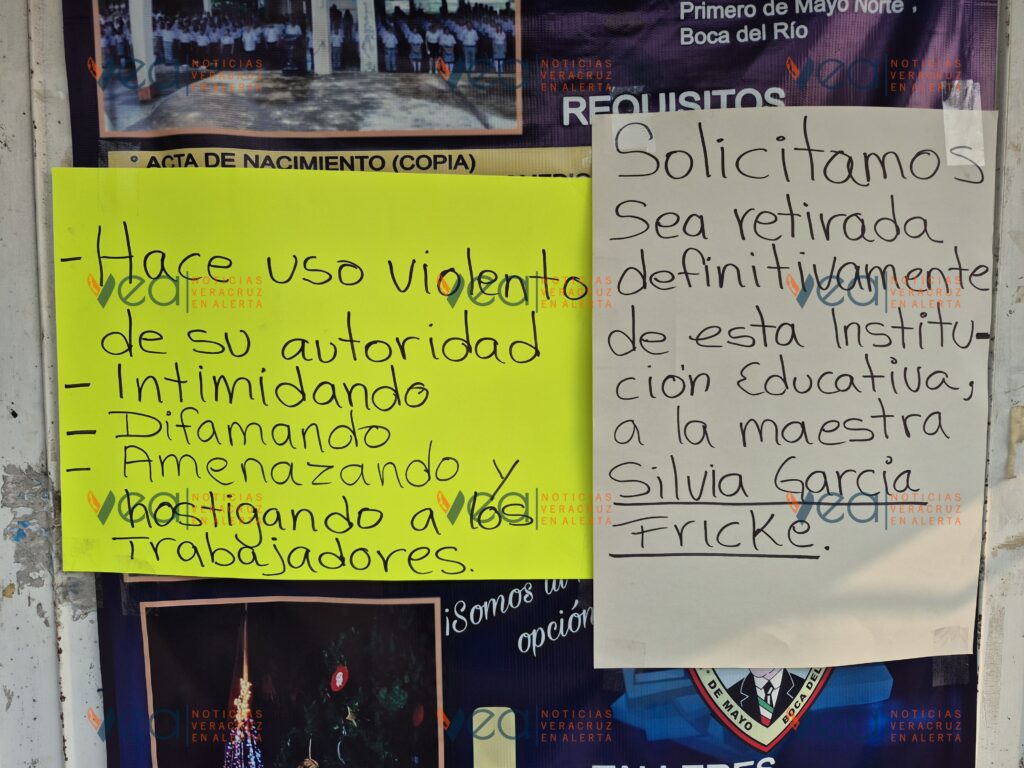 Primero de Mayo Norte,
Boca del Río
REQUISITOS
° ACTA DE NACIMIENTO (COPIA)
- Hace uso violento
de su autoridad
- Intimidando
- Difamando
- Amenazando y
hostigando a los
Trabajadores.
Solicitamos
Sea retirada
definitivamente
de esta Institu-
ción Educativa,
a la maestra
Silvia García
Fricke.
¡Somos tu
opción
DE MAYO
BOCA DEL
TALLERES
vea NOTICIAS
VERACRUZ
EN ALERTA